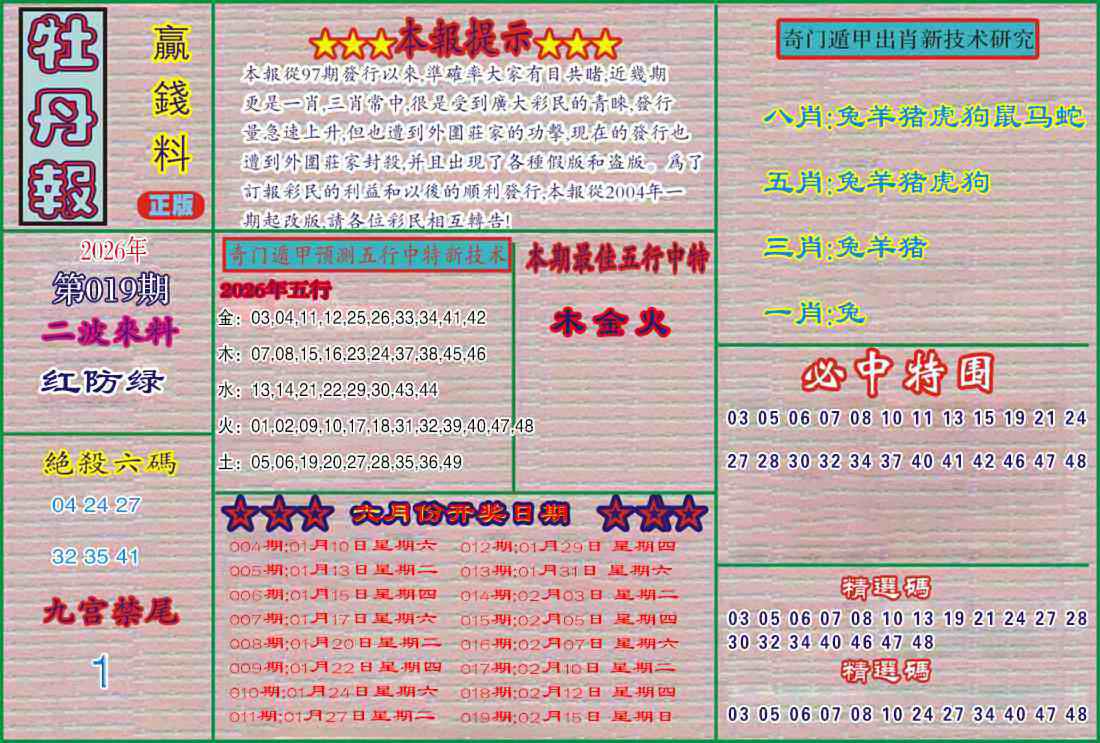 牡丹報
贏錢料
正版
★★★本報提示★★★
本報從97期發行以來,準確率大家有目共睹,近幾期
更是一肖,三肖常中,很是受到廣大彩民的青睞,發行
量急速上升,但也遭到外圍莊家的功擊,現在的發行也
遭到外圍莊家封殺,并且出現了各種假版和盗版。爲了
訂報彩民的利益和以後的順利發行,本報從2004年一
期起改版,請各位彩民相互轉告!
奇门遁甲出肖新技术研究
八肖:兔羊猪虎狗鼠马蛇
五肖:兔羊猪虎狗
三肖:兔羊猪
一肖:兔
2026年
第019期
二波來料
红防绿
奇门遁甲预测五行中特新技术
2026年五行
金：03,04,11,12,25,26,33,34,41,42
木：07,08,15,16,23,24,37,38,45,46
水：13,14,21,22,29,30,43,44
火：01,02,09,10,17,18,31,32,39,40,47,48
土：05,06,19,20,27,28,35,36,49
本期最佳五行中特
木金火
必中特围
03 05 06 07 08 10 11 13 15 19 21 24
27 28 30 32 34 37 40 41 42 46 47 48
絕殺六碼
04 24 27
32 35 41
九宫禁尾
1
★★★ 六月份开奖日期 ★★★
004期;01月10日星期六 012期;01月29日 星期四
005期;01月13日星期二 013期;01月31日 星期六
006期;01月15日星期四 014期;02月03日 星期二
007期;01月17日星期六 015期;02月05日 星期四
008期;01月20日星期二 016期;02月07日 星期六
009期;01月22日星期四 017期;02月10日 星期二
010期;01月24日星期六 018期;02月12日 星期四
011期;01月27日星期二 019期;02月15日 星期日
精選碼
03 05 06 07 08 10 13 19 21 24 27 28
30 32 34 40 46 47 48
精選碼
03 05 06 07 08 10 24 27 34 40 47 48